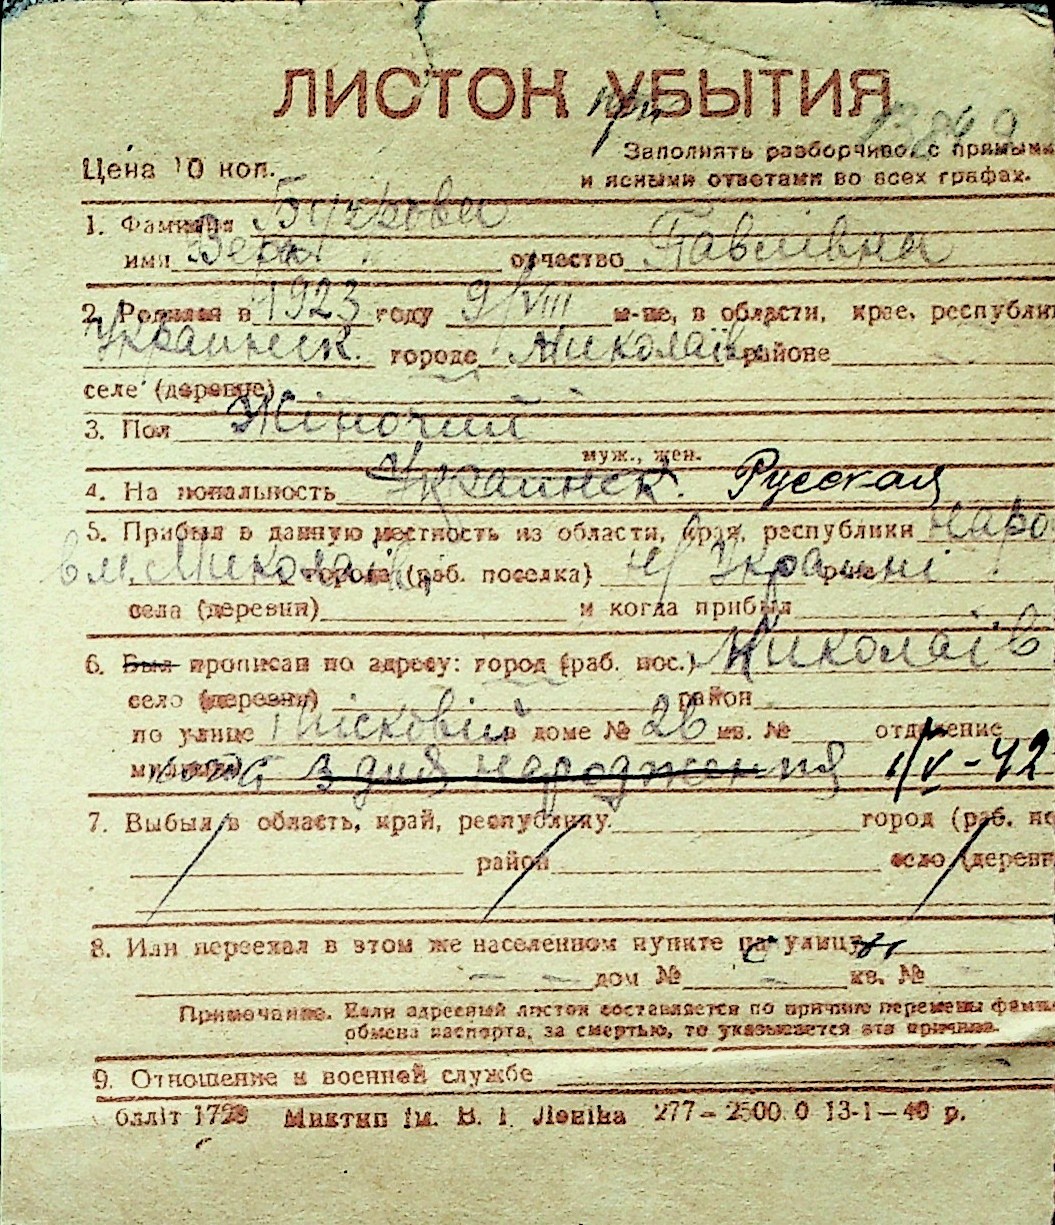 ЛИСТОК УБЫТИЯ
Заполнять разборчиво, с прямыми
Цена 10 коп. и ясными ответами во всех графах.
1. Фамилия
имя Вера отчество Павлівна
2. Родился в 1923 году 9/VIII м-це, в области, крае, республи
Украинск. городе Миколаїв районе
селе (деревне)
3. Пол Жіночий
муж., жен.
4. На иональность Украинск. Русская
5. Прибыл в данную местность из области, края, республики наро
в м. Миколаїві города (раб. поселка) на Украині
села (деревни) и когда прибыл
6. Был прописан по адресу: город (раб. пос.) Миколаїв
село (деревня) район
по улице Пісковій в доме № 26 кв. № отделение
милиции з дня народження 1/V-42
7. Выбыл в область, край, республику город (раб. по
район село (деревн
8. Или переехал в этом же населенном пункте на улицу
дом № кв. №
Примечание. Если адресный листок составляется по причине перемены фами
обмена паспорта, за смертью, то указывается эта причина.
9. Отношение к военной службе
Миктип ім. В. І. Леніна 277—2500.0 13-1—40 р.